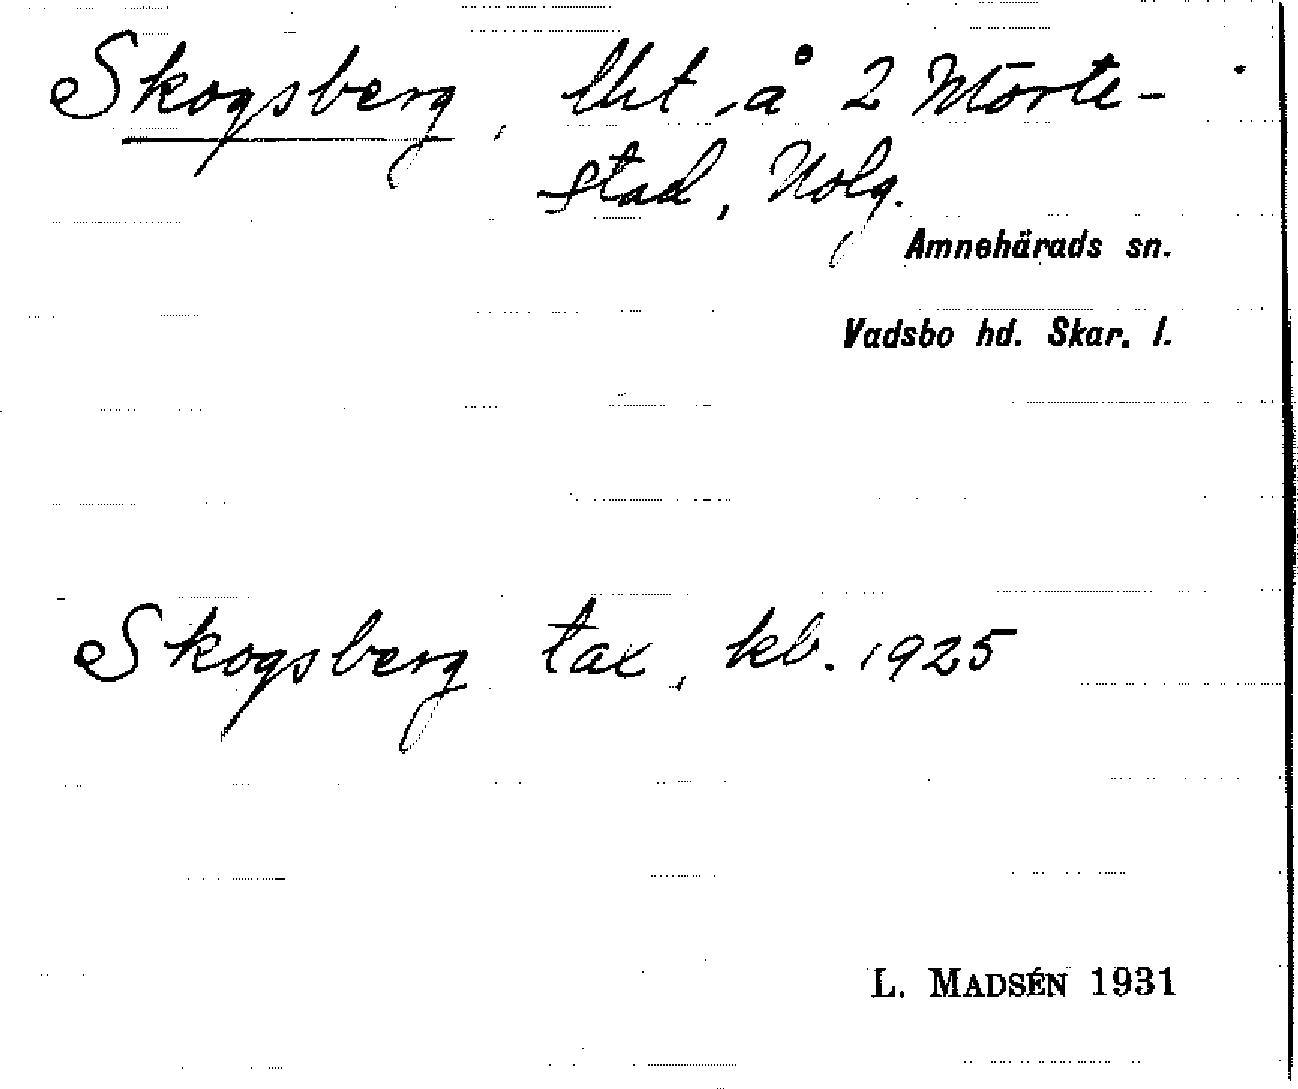 Skogsberg, lht å 2 Mörte-
stad, Nolg.
Amnehärads sn.
Vadsbo hd. Skar. l.
Skogsberg tax, kb. 1925
L. MADSÉN 1931